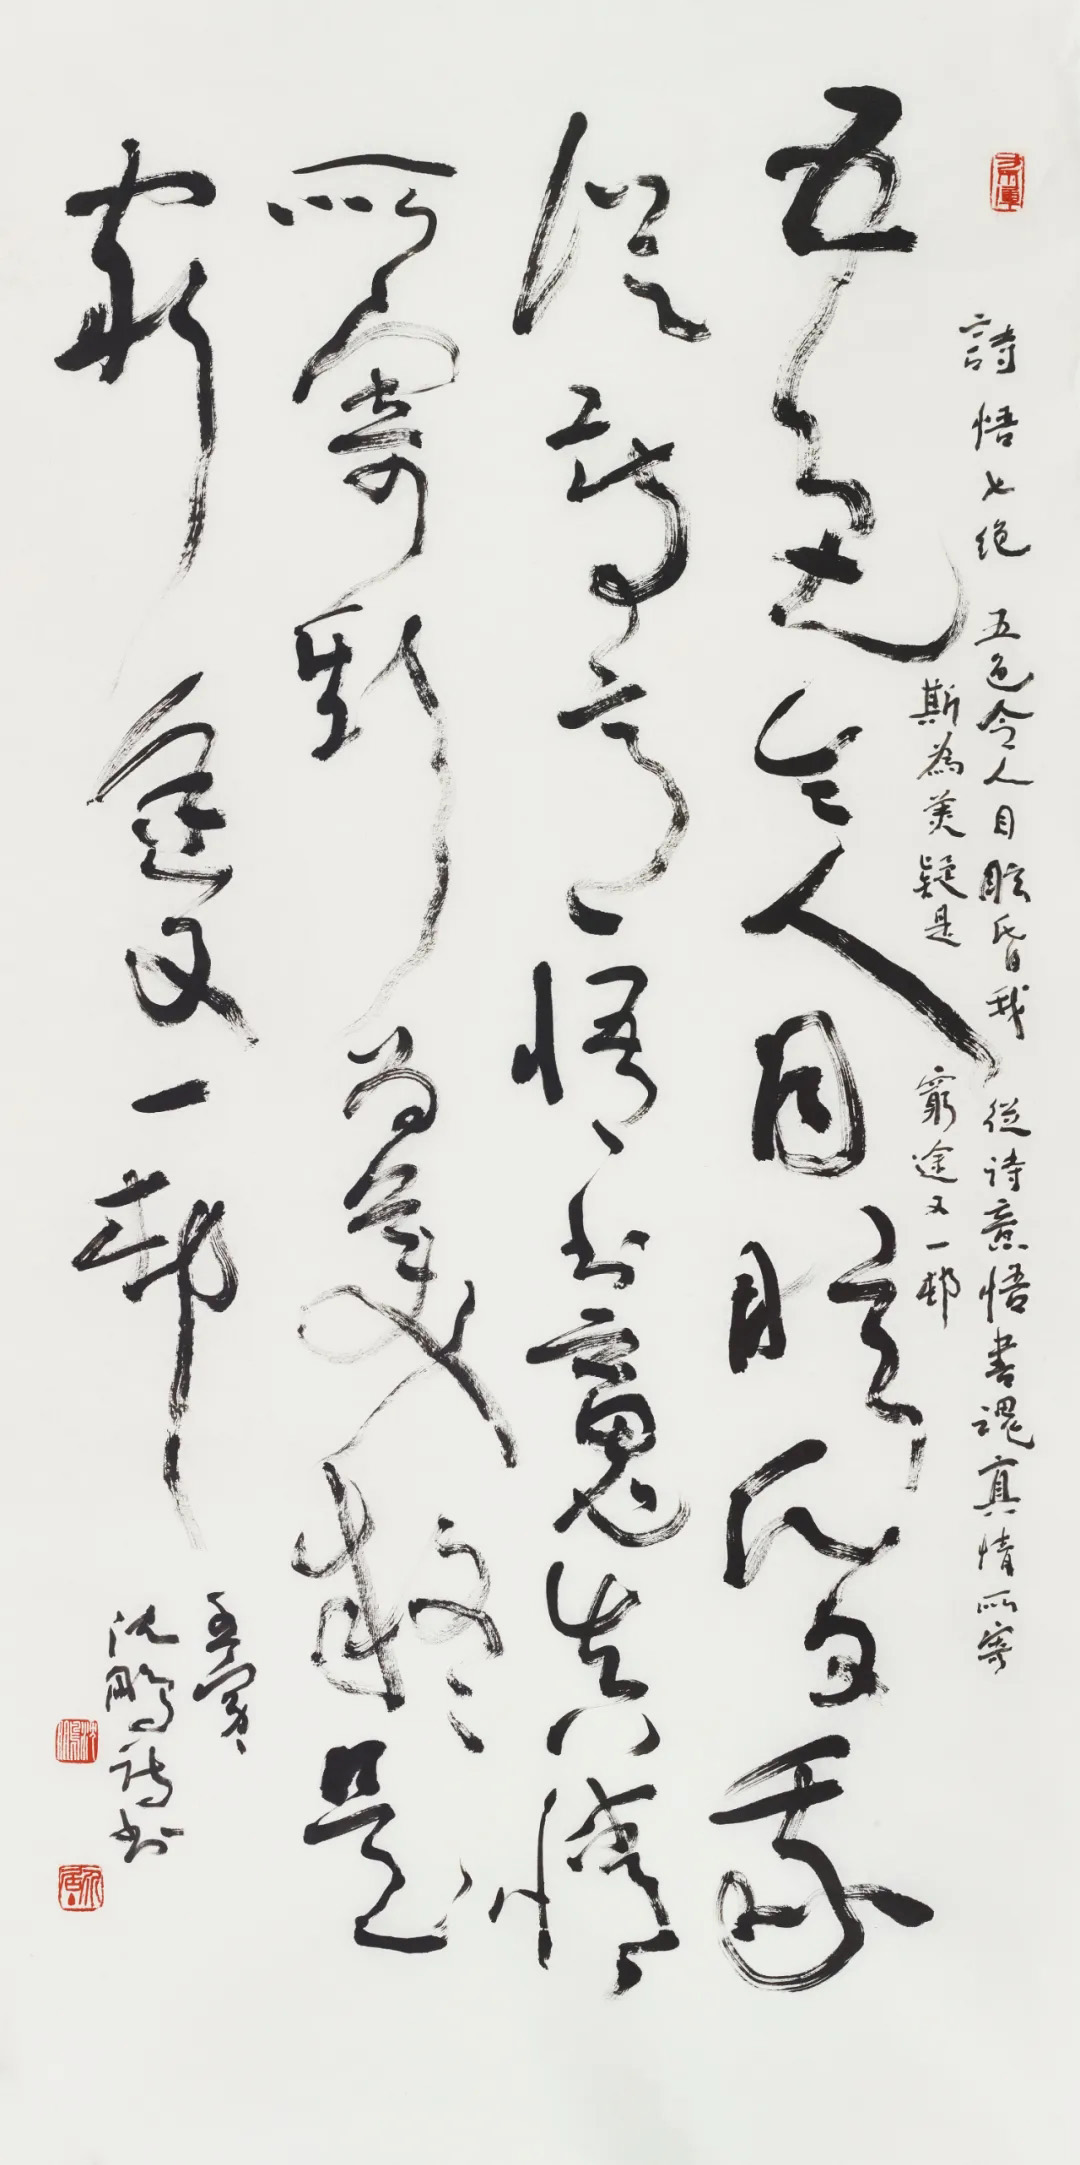 詩悟七绝 五色令人目眩昏我從诗意悟書魂真情所寄
斯為美疑是窮途又一邨
五色令人目眩昏我
從诗意悟书魂真情
所寄斯为美疑是
窮途又一邨
沈鹏诗书
沈鹏